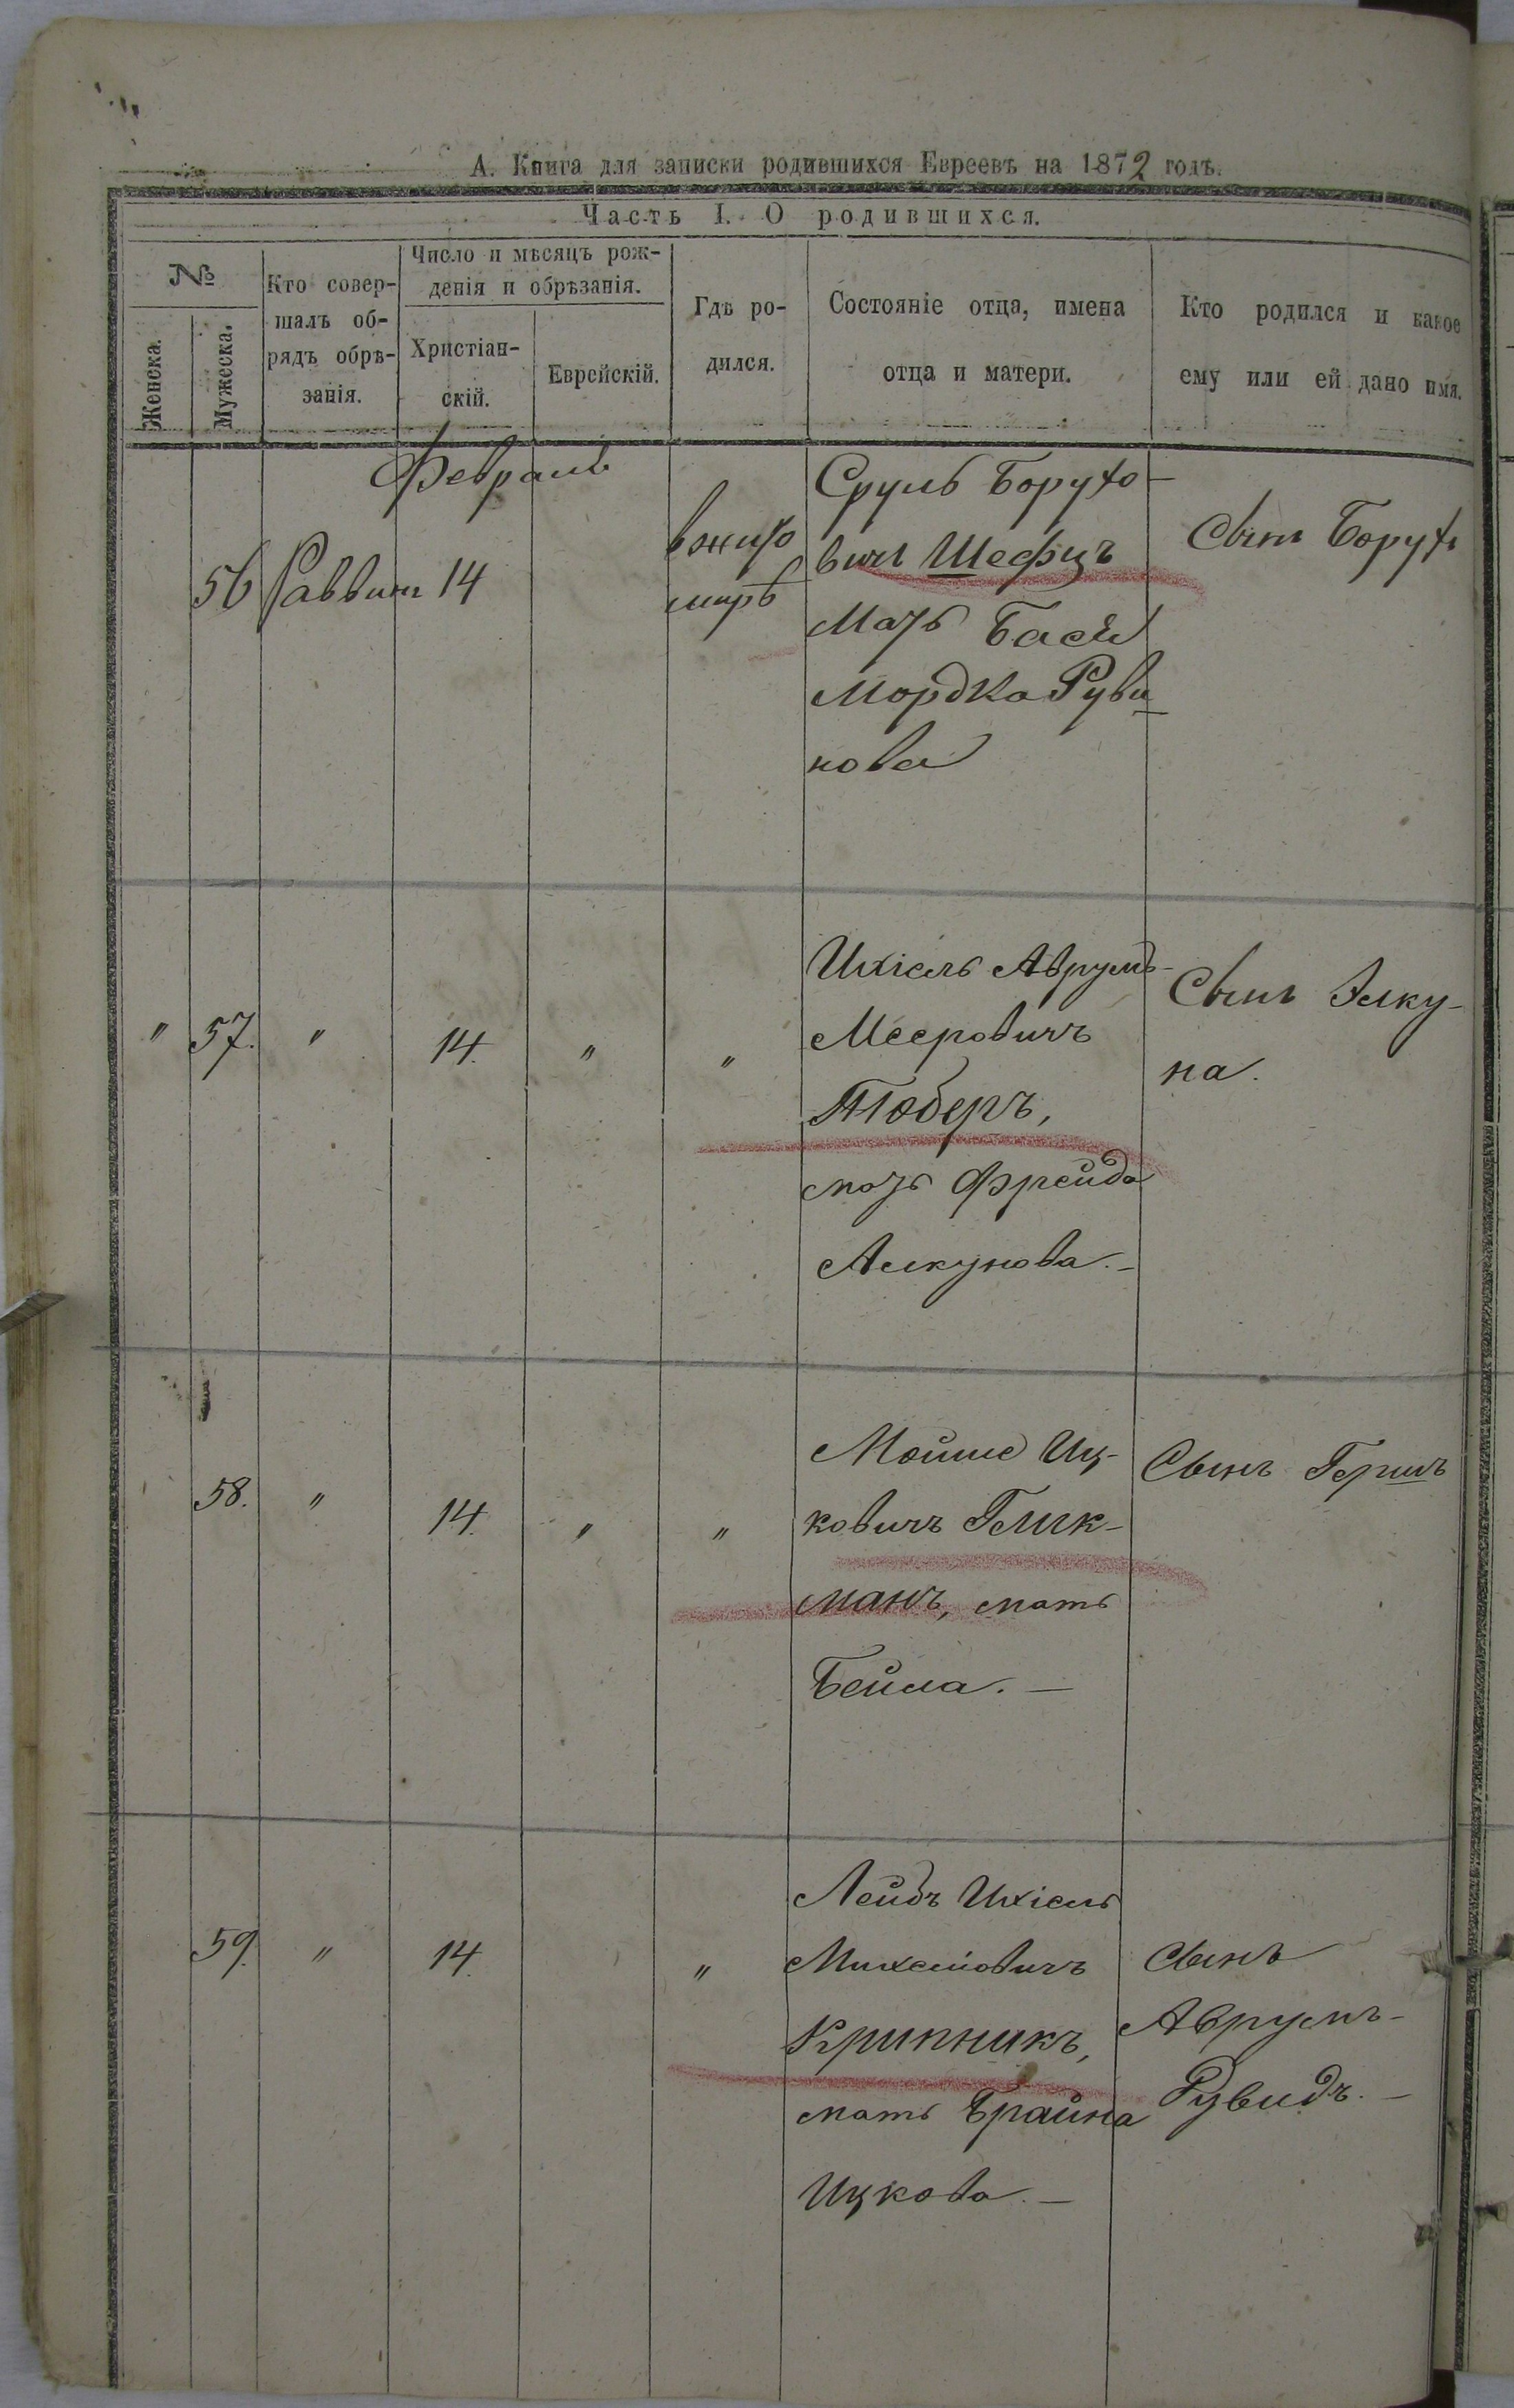 А. Книга для записки родившихся Евреевъ на 1872 годъ.
Часть I. О родившихся.
№
Женска.
Мужеска.
Кто совер-
шалъ об-
рядъ обрѣ-
занія.
Число и мѣсяцъ рож-
денія и обрѣзанія.
Христіан-
скій.
Еврейскій.
Гдѣ ро-
дился.
Состояніе отца, имена
отца и матери.
Кто родился и какое
ему или ей дано имя.
Февраль
56 Раввинъ 14
въ Жито
мирѣ
Сруль Борухо-
вичъ Шефцъ
Мать Бася
Мордка Руви
нова
Сынъ Борухъ
" 57. " 14. " "
Ихіель Аврумъ-
Мееровичъ
Тюберъ,
мать Фрейда
Алкунова.-
Сынъ Элку-
на.
58. " 14. " "
Мойше Иц-
ковичъ Глик-
манъ, мать
Бейла. -
Сынъ Гершъ
59. " 14. "
Лейбъ Ихіель
Михелiовичъ
Крипникъ,
мать Брайна
Ицкова. -
Сынъ
Аврумъ-
Рувидъ. -